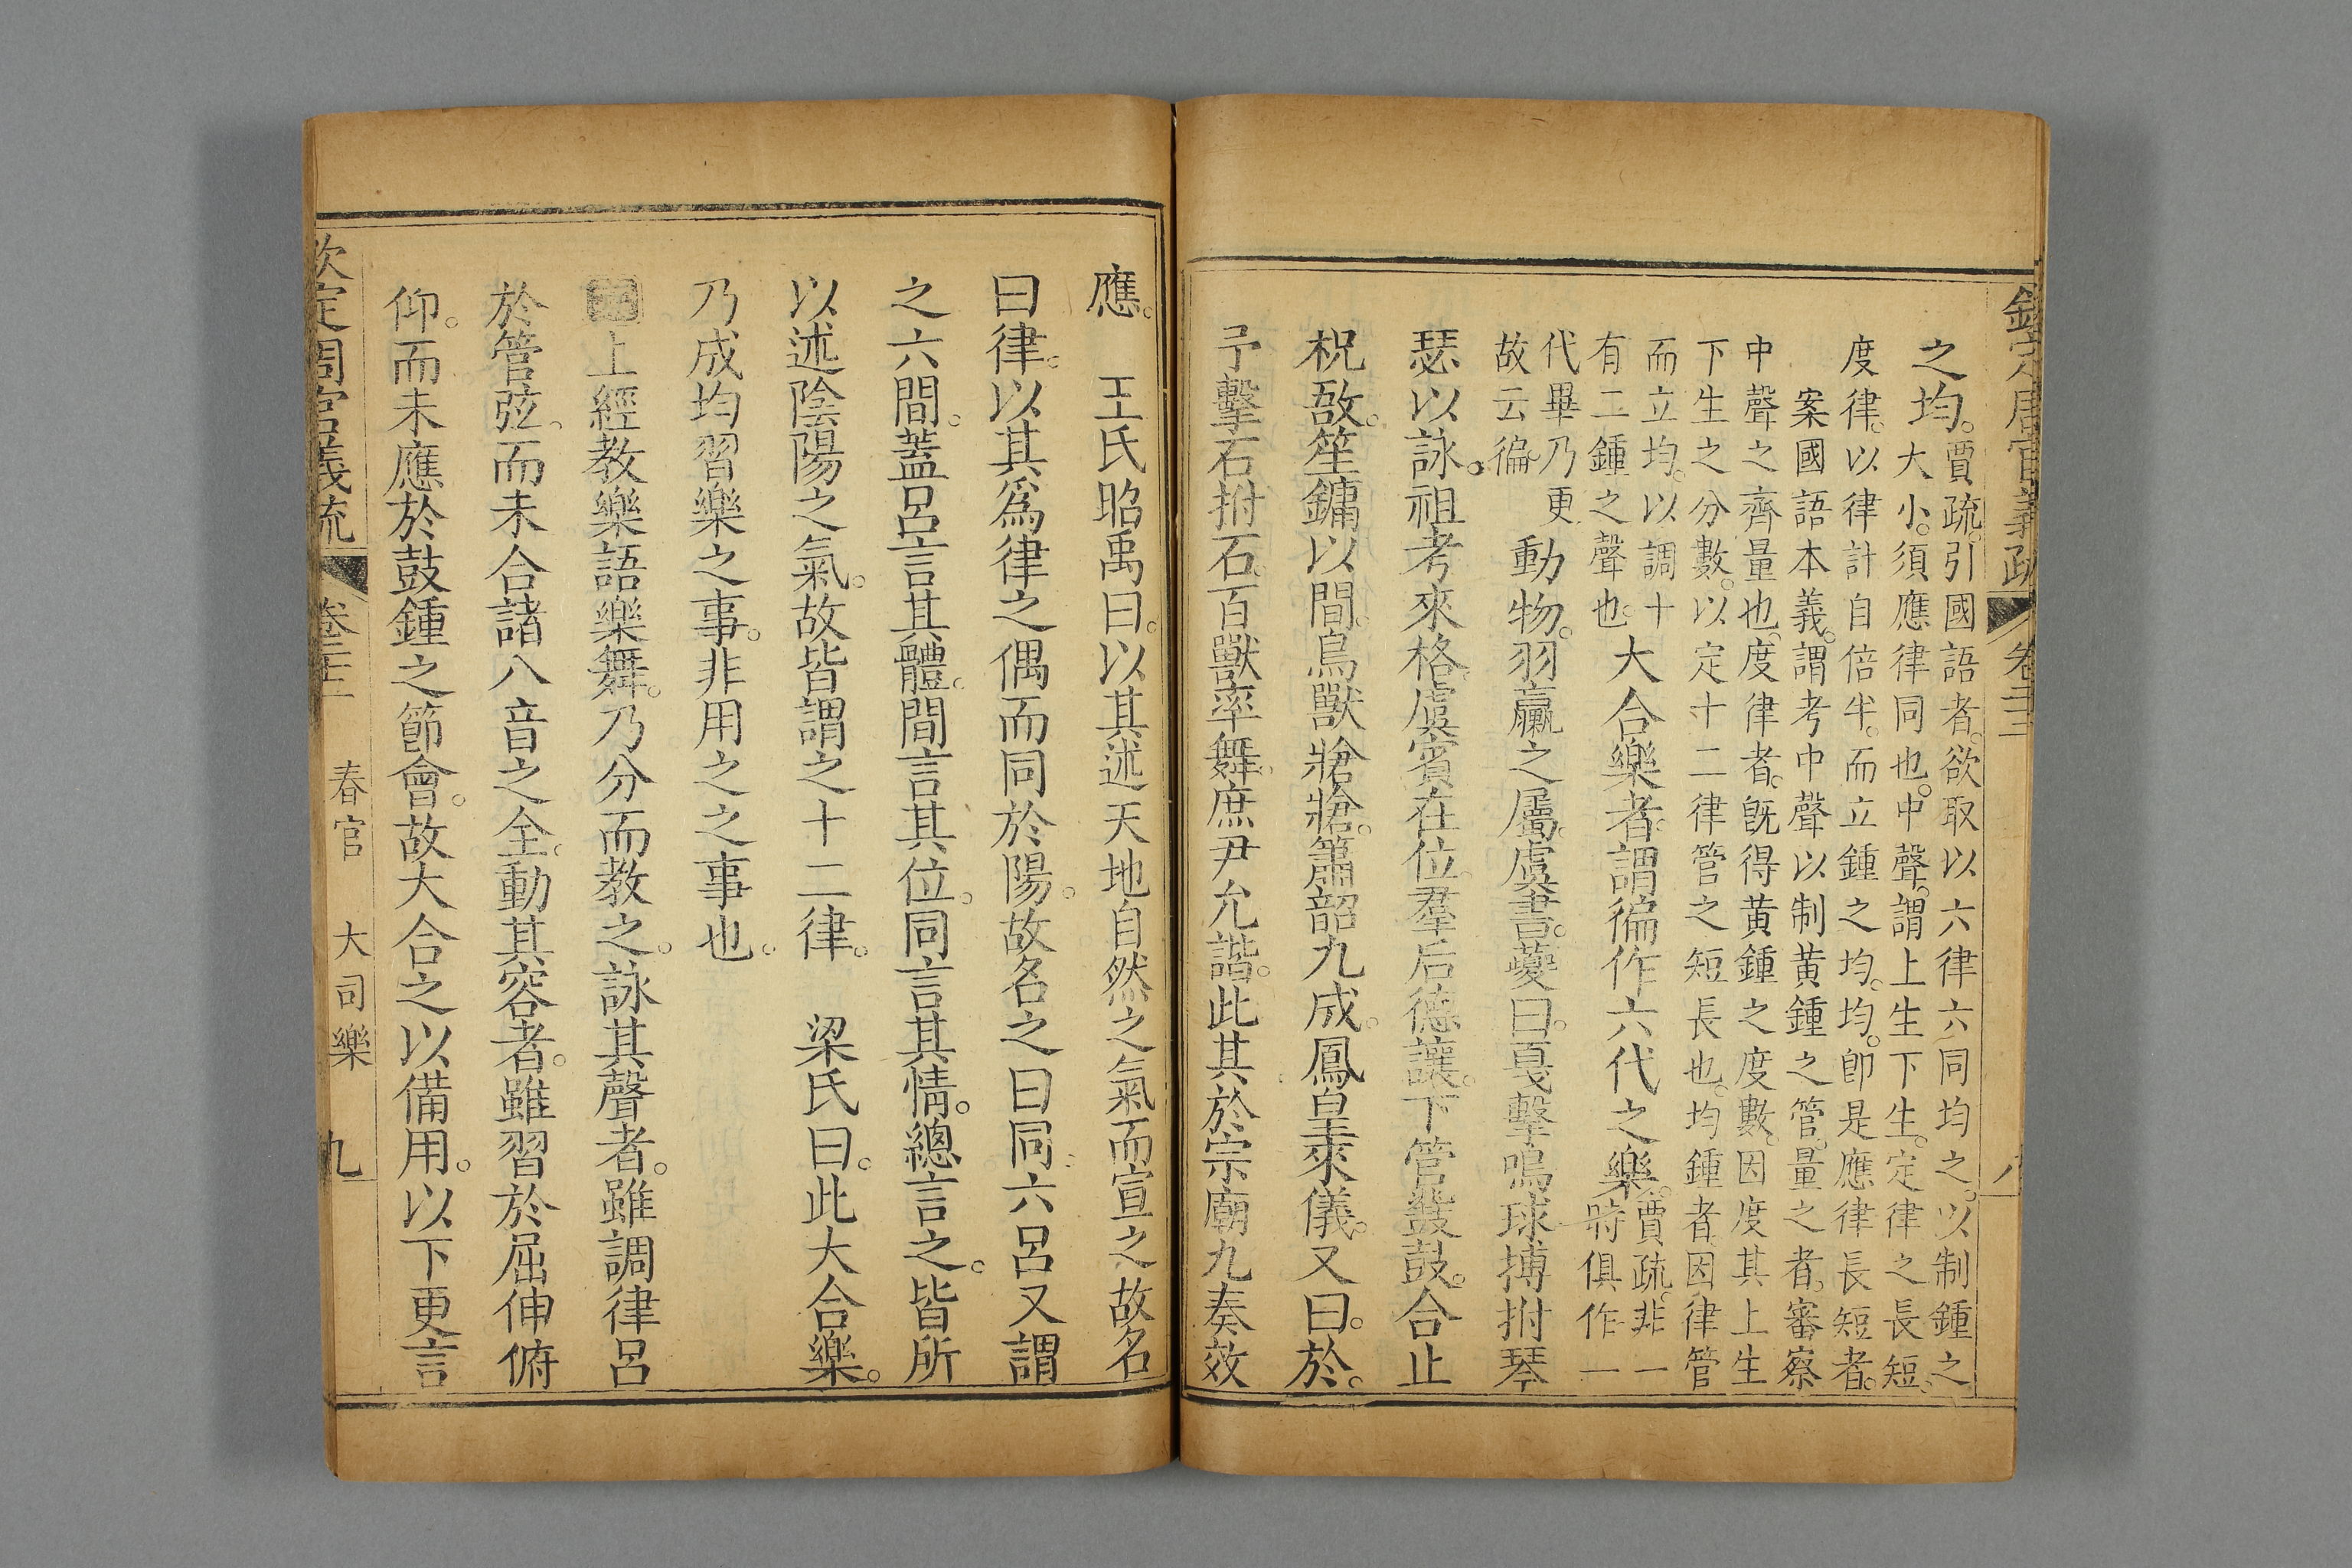 欽定周官義疏 卷二十二 八
之均。
賈疏。引國語者。欲取以六律六同均之。以制鍾之
大小。須應律同也。中聲。謂上生下生。定律之長短。
度律。以律計自倍半。而立鍾之均。均。卽是應律長短者。
案國語本義。謂考中聲以制黄鍾之管。量之者。審察
中聲之齊量也。度律者。旣得黄鍾之度數。因度其上生
下生之分數。以定十二律管之短長也。均鍾者。因律管
而立均。以調十
有二鍾之聲也。
大合樂者。謂徧作六代之樂。
賈疏。非一
時俱作一
代畢乃更
故云徧。
動物。羽臝之屬。虞書。夔曰。戛擊鳴球搏拊琴
瑟以詠。祖考來格。虞賓在位。羣后德讓。下管鼗鼓。合止
柷敔。笙鏞以間。鳥獸牄牄。簫韶九成。鳳皇來儀。又曰。於。
予擊石拊石。百獸率舞。庶尹允諧。此其於宗廟九奏效
應。 王氏昭禹曰。以其述天地自然之氣而宣之故名
曰律。以其爲律之偶而同於陽。故名之曰同。六呂又謂
之六間。蓋呂言其體。間言其位。同言其情。總言之。皆所
以述陰陽之氣。故皆謂之十二律。 梁氏曰。此大合樂。
乃成均習樂之事。非用之之事也。
上經教樂語樂舞。乃分而教之。詠其聲者。雖調律呂
於管弦。而未合諸八音之全。動其容者。雖習於屈伸俯
仰。而未應於鼓鍾之節會。故大合之以備用。以下更言
欽定周官義疏 卷二十二 春官 大司樂 九